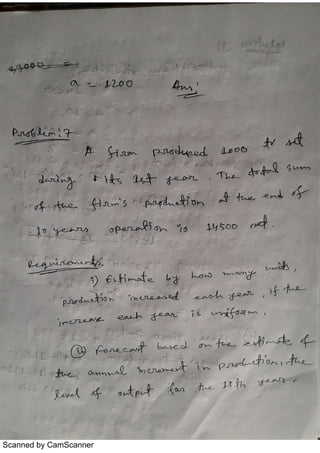 a = 1200 Ans;
Problem: 7
A firm produced 1000 tv set
during its 1st year. The total sum
of the firm's production at the end of
10 years operation is 14500 set.
Requirements:
i) Estimate by how many units,
production increased each year, if the
increase each year is uniform.
ii) Forecast based on the estimate of
the annual increment in production, the
level of output for the 15th year.
Scanned by CamScanner